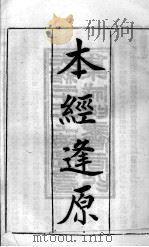 本經逢原
研狗
mtoou.info